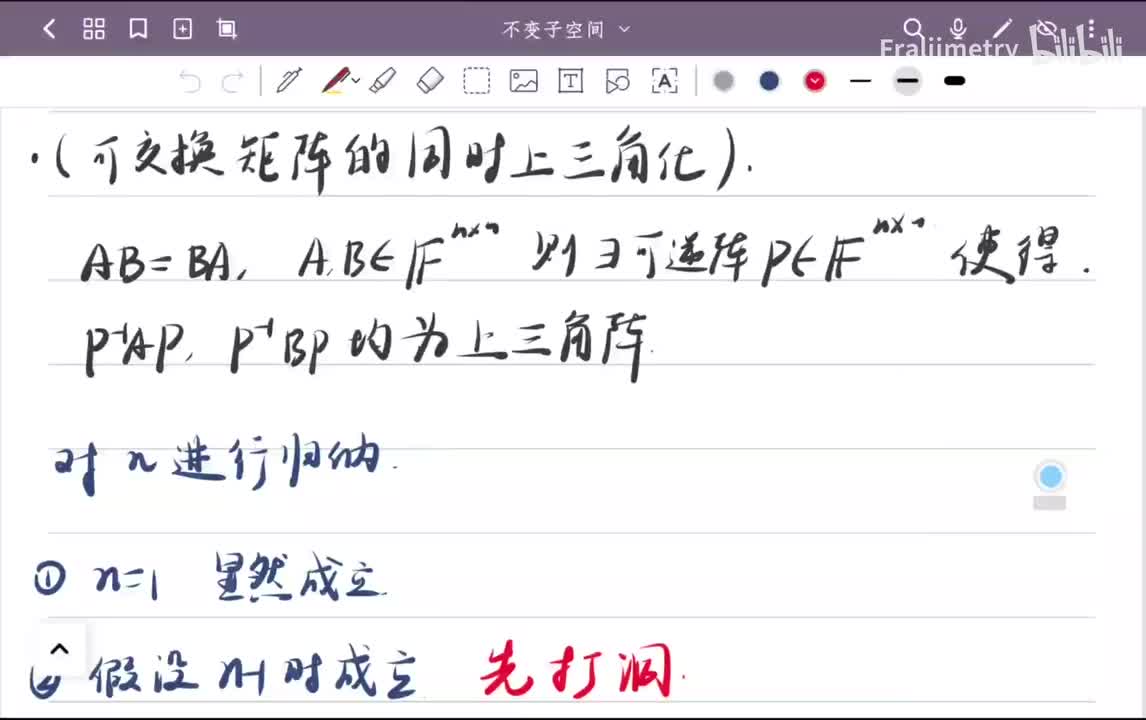 不变子空间
Fraljimetry bilibili
·(可交换矩阵的同时上三角化).
AB=BA, A,B∈F^{n×n} 则∃可逆阵P∈F^{n×n} 使得.
P⁻¹AP, P⁻¹BP 均为上三角阵.
对 n 进行归纳.
① n=1 显然成立.
② 假设 n-1 时成立 先打洞.